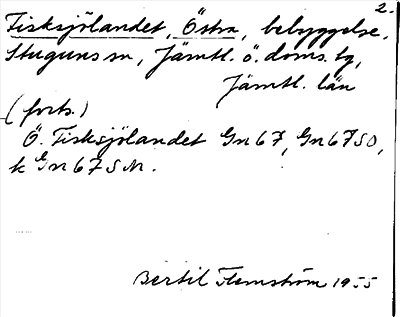 2.
Fisksjölandet, Östra, bebyggelse,
Stuguns sn, Jämtl. ö. doms. tg,
Jämtl. län
(forts.)
Ö. Fisksjölandet Gn 67, Gn 67 SO,
k Gn 67 S M.
Bertil Flemström 1955